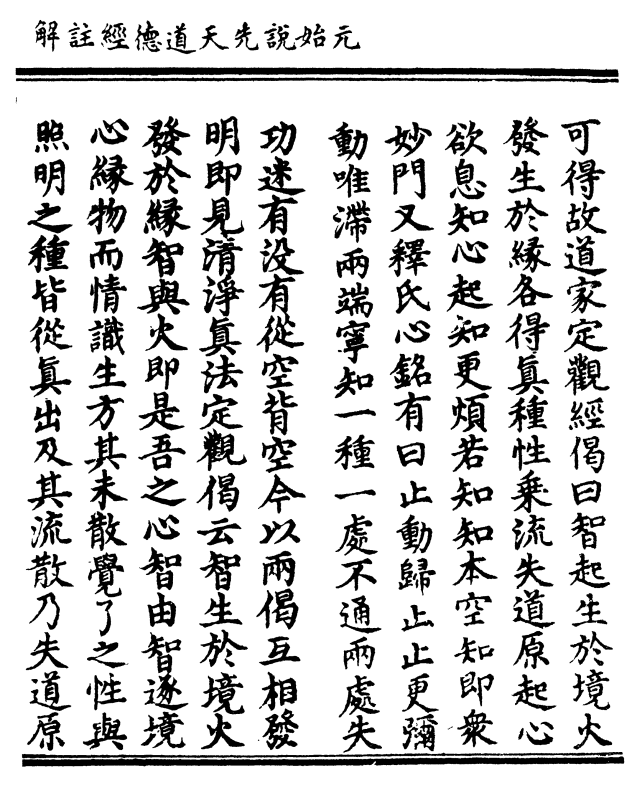 元始說先天道德經註解
可得故道家定觀經偈曰智起生於境火
發生於緣各得真種性乗流失道原起心
欲息知心起知更煩若知知本空知即衆
妙門又釋氏心銘有曰止動歸止止更彌
動唯滯兩端寧知一種一處不通兩處失
功迷有没有從空背空今以兩偈互相發
明即見清淨真法定觀偈云智生於境火
發於緣智與火即是吾之心智由智逐境
心緣物而情識生方其未散覺了之性與
照明之種皆從真出及其流散乃失道原